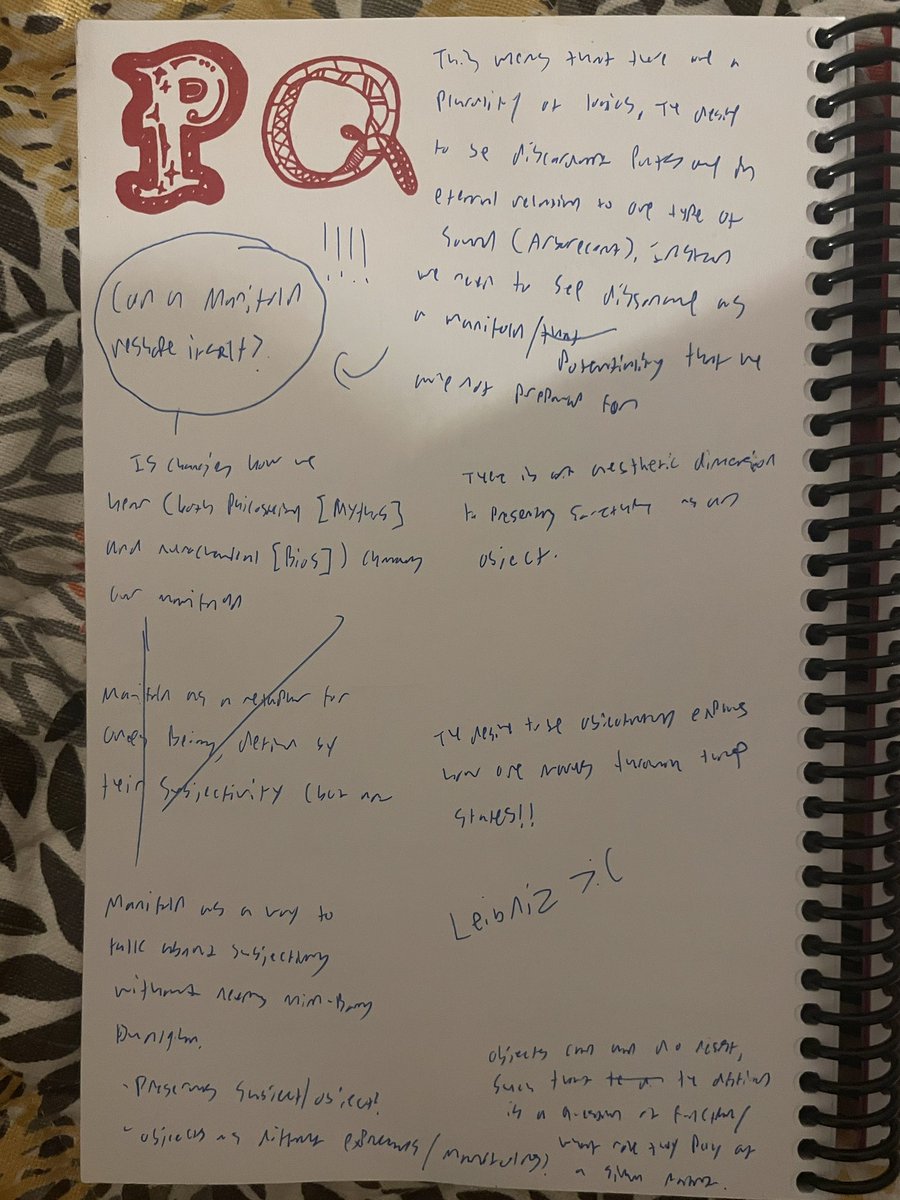 P Q
Can a Manifold
reshape itself?
!!!!
Is changing how we
hear (both Philosophy [Mythos]
and [Bios]) changing
our manifold
Manifold as a for
Being, define by
their Subjectivity (but an
Manifold as a way to
talk about subjectivity
without needing Mind-Body
Dualism.
- Preserves Subject/object?
- objects as different expressions/manifolds?
This means that there are a
Plurality of logics, The desire
to be discordant and in
external relation to one type of
Sound (Arborecent), instead
we need to see dissonance as
a manifold/that
Potentiality that we
were not prepared for
There is an aesthetic dimension
to presenting as an
object.
The desire to be explains
how one moves through
states!!
Leibniz >:(
objects can and do resist,
Such that the
is a question of function/
what role they play at
a given